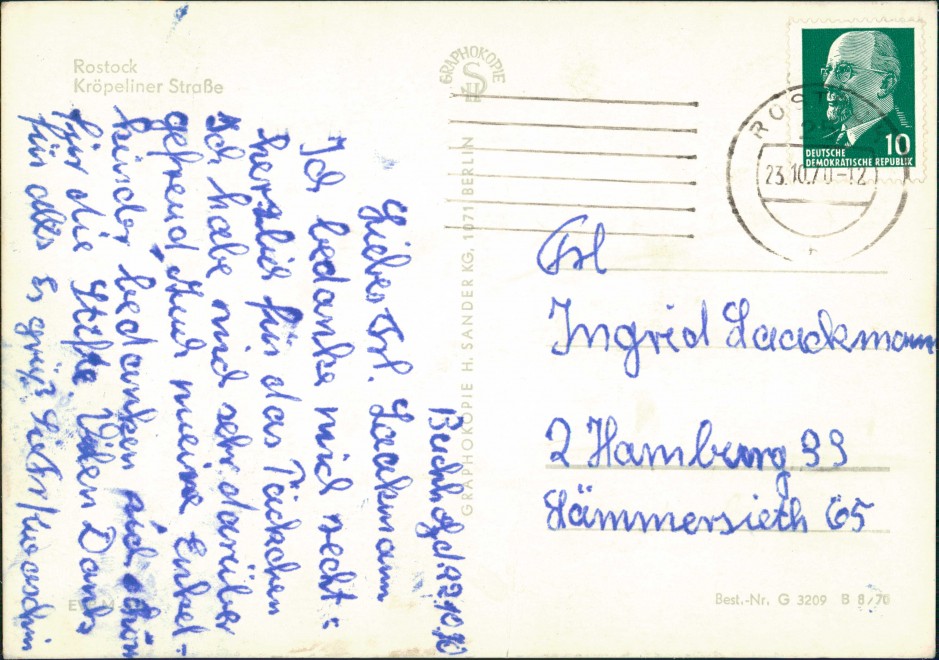 Rostock
Kröpeliner Straße
GRAPHOKOPIE
GRAPHOKOPIE H. SANDER KG, 1071 BERLIN
10
DEUTSCHE
DEMOKRATISCHE REPUBLIK
ROST
23.10.70-12
Buchholz d. 22.10.70
Liebes Frl. Laakmann
Ich bedanke mich recht=
herzlich für das Päckchen
Ich habe mich sehr darüber
gefreud, Auch meine Enkel-
kinder bedanken sich schön
für die Stifte. Vielen Dank
für alles Es grüßt
Frl
Ingrid Laackmann
2 Hamburg 33
Lämmersieth 65
Best.-Nr. G 3209 B 8/70